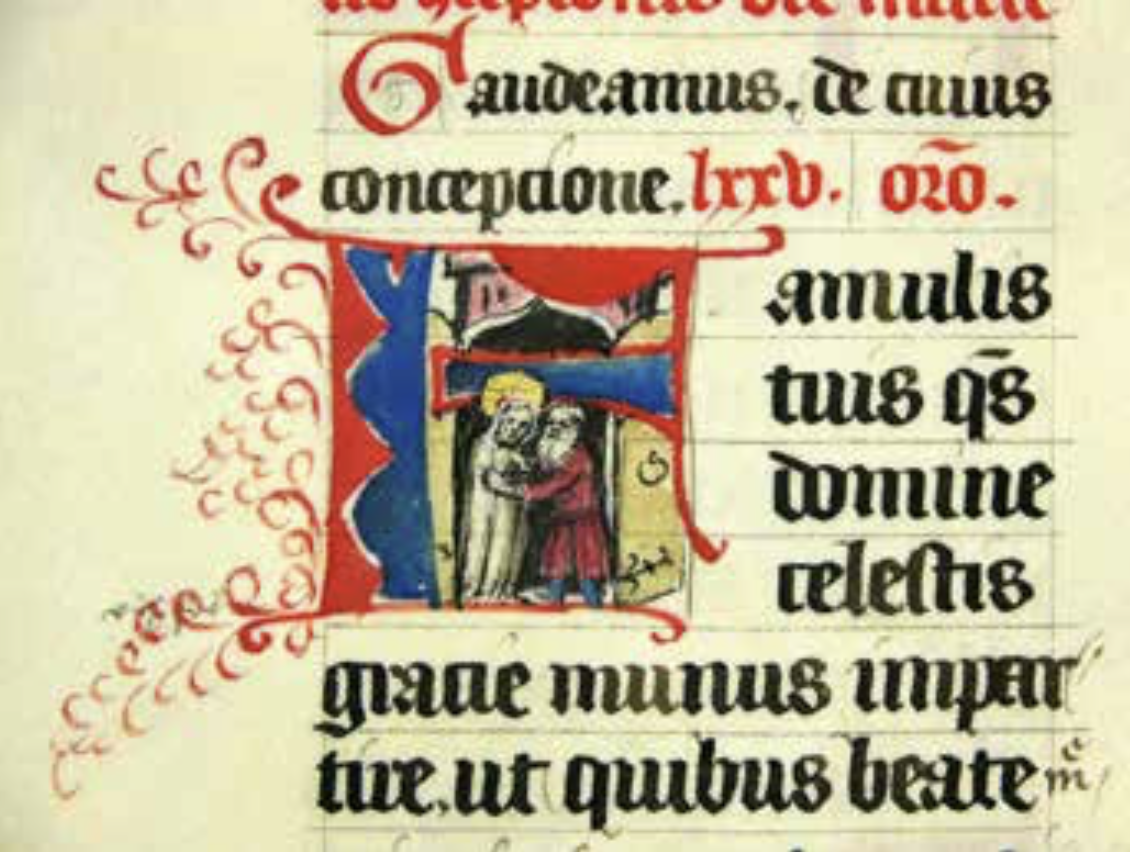 Gaudeamus. de cuius
concepcione. lxxv. oro̅.
Famulis
tuis qs̅
domine
celestis
gracie munus impar
tire. ut quibus beate